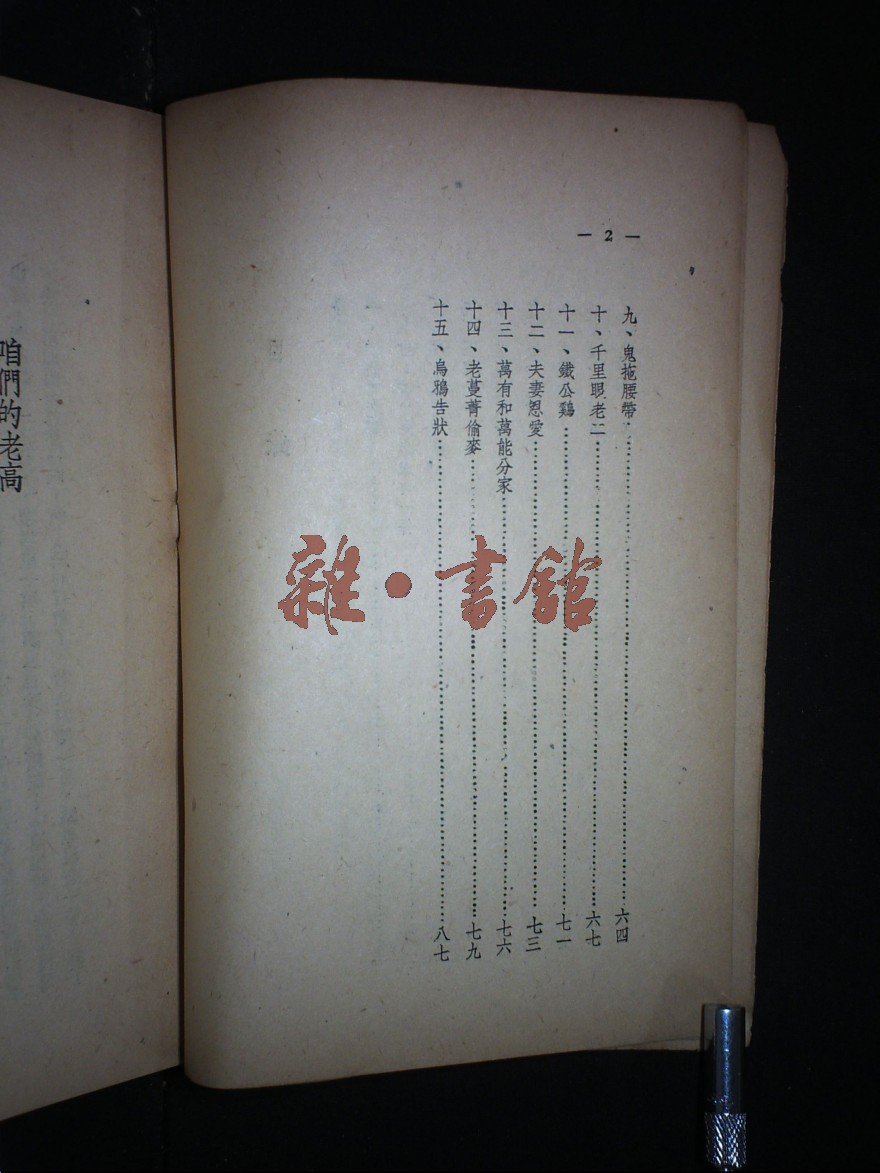 — 2 —
九、鬼拖腰帶……六四
十、千里眼老二……六七
十一、鐵公鷄……七一
十二、夫妻恩愛……七三
十三、萬有和萬能分家……七六
十四、老蔓菁偷麥……七九
十五、烏鴉告狀……八七
咱們的老高
雜·書館